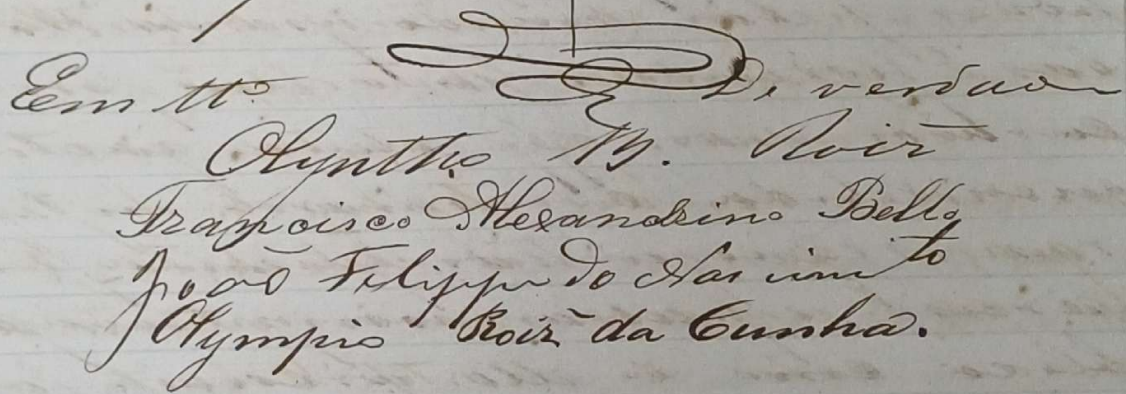 Em tto. De verdade
Olyntho B. Roiz
Francisco Alexandrino Bello
João Filippe do Nascimto
Olympio Roiz da Cunha.